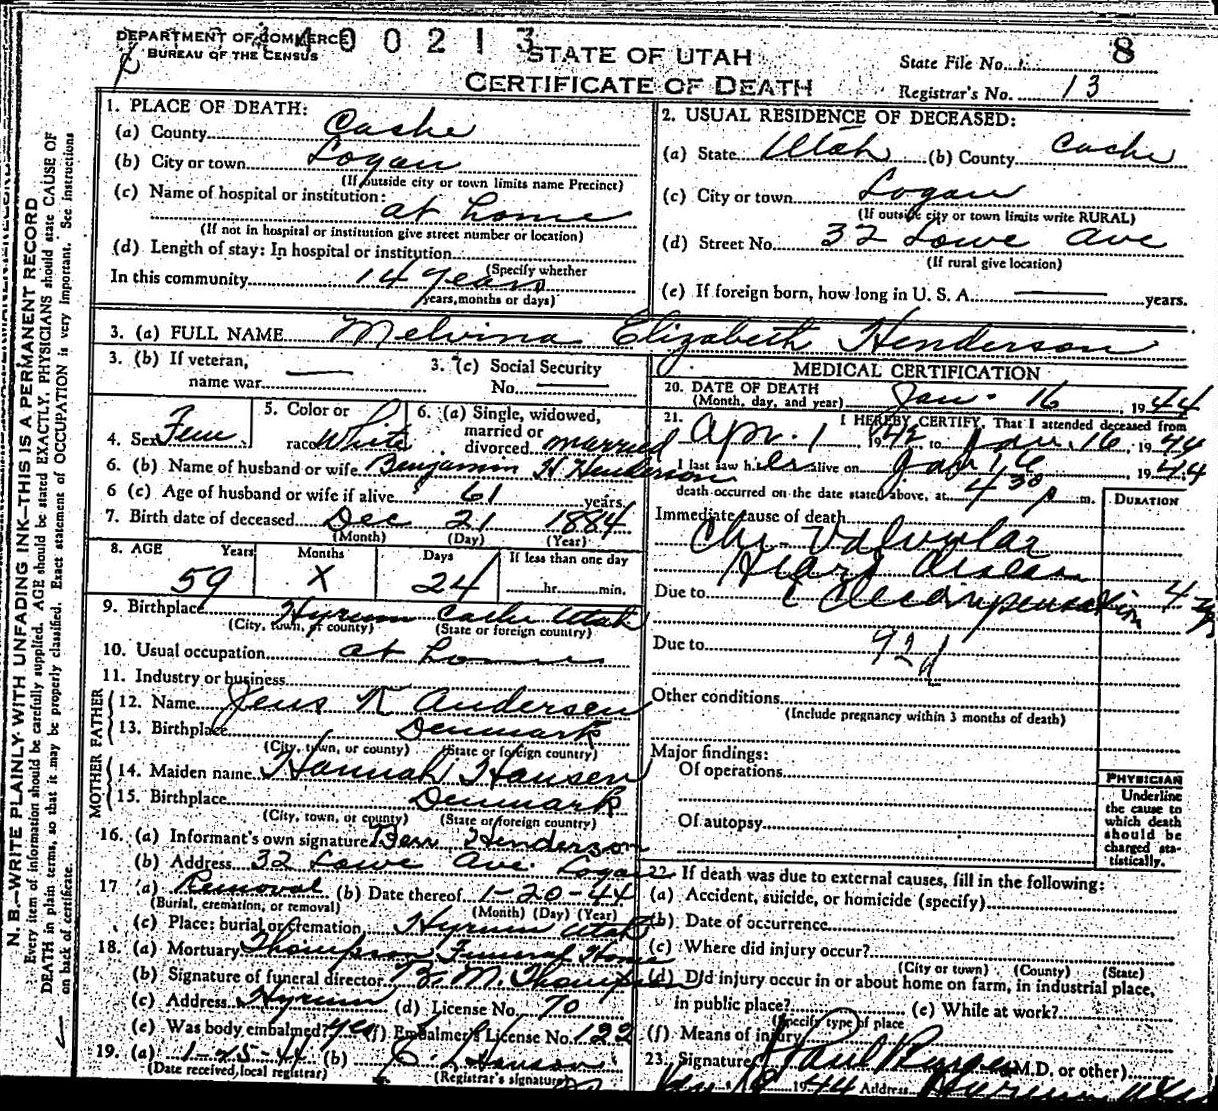 DEPARTMENT OF COMMERCE
BUREAU OF THE CENSUS
400213
STATE OF UTAH
CERTIFICATE OF DEATH
8
State File No.
Registrar's No. 13
N. B.—WRITE PLAINLY WITH UNFADING INK—THIS IS A PERMANENT RECORD
Every item of information should be carefully supplied. AGE should be stated EXACTLY. PHYSICIANS should state CAUSE OF
DEATH in plain terms, so that it may be properly classified. Exact statement of OCCUPATION is very important. See instructions
on back of certificate.
1. PLACE OF DEATH:
(a) County Cache
(b) City or town Logan
(If outside city or town limits name Precinct)
(c) Name of hospital or institution:
at home
(If not in hospital or institution give street number or location)
(d) Length of stay: In hospital or institution
(Specify whether
In this community 14 years
years, months or days)
2. USUAL RESIDENCE OF DECEASED:
(a) State Utah (b) County Cache
(c) City or town Logan
(If outside city or town limits write RURAL)
(d) Street No. 32 Lowe Ave
(If rural give location)
(e) If foreign born, how long in U. S. A. — years.
3. (a) FULL NAME Melvina Elizabeth Henderson
3. (b) If veteran,
name war —
3. (c) Social Security
No. —
4. Sex Fem
5. Color or
race White
6. (a) Single, widowed,
married or
divorced married
6. (b) Name of husband or wife Benjamin H Henderson
6 (c) Age of husband or wife if alive 61 years
7. Birth date of deceased Dec 21 1884
(Month) (Day) (Year)
8. AGE Years Months Days If less than one day
59 X 24 hr. min.
9. Birthplace Hyrum Cache Utah
(City, town, or county) (State or foreign country)
10. Usual occupation at home
11. Industry or business
FATHER
12. Name Jens K Andersen
13. Birthplace Denmark
(City, town, or county) (State or foreign country)
MOTHER
14. Maiden name Hannah Hansen
15. Birthplace Denmark
(City, town, or county) (State or foreign country)
16. (a) Informant's own signature Henderson
(b) Address 32 Lowe Ave. Logan
17 (a) Removal (b) Date thereof 1-20-44
(Burial, cremation, or removal) (Month) (Day) (Year)
(c) Place: burial or cremation Hyrum Utah
18. (a) Mortuary Thompson Funeral Home
(b) Signature of funeral director M. Thompson
(c) Address Hyrum (d) License No. 70
(e) Was body embalmed? yes (f) Embalmer's License No. 122
19. (a) 1-25-44 (b) Hanson
(Date received, local registrar) (Registrar's signature)
MEDICAL CERTIFICATION
20. DATE OF DEATH
(Month, day, and year) Jan. 16, 1944
21. I HEREBY CERTIFY, That I attended deceased from
Apr. 1 1942 to Jan. 16, 1944
I last saw her alive on Jan 16 1944
death occurred on the date stated above, at 4 30 p m.
DURATION
Immediate cause of death
Chr. Valvular
Heart disease
Due to c decompensation 4 yrs
Due to
92d
Other conditions
(Include pregnancy within 3 months of death)
Major findings:
Of operations
Of autopsy
PHYSICIAN
Underline
the cause to
which death
should be
charged sta-
tistically.
22. If death was due to external causes, fill in the following:
(a) Accident, suicide, or homicide (specify)
(b) Date of occurrence
(c) Where did injury occur?
(City or town) (County) (State)
(d) Did injury occur in or about home on farm, in industrial place,
in public place? (e) While at work?
(Specify type of place
(f) Means of injury
23. Signature Paul (M.D. or other)
Jan. 18 1944 Address Hyrum Utah